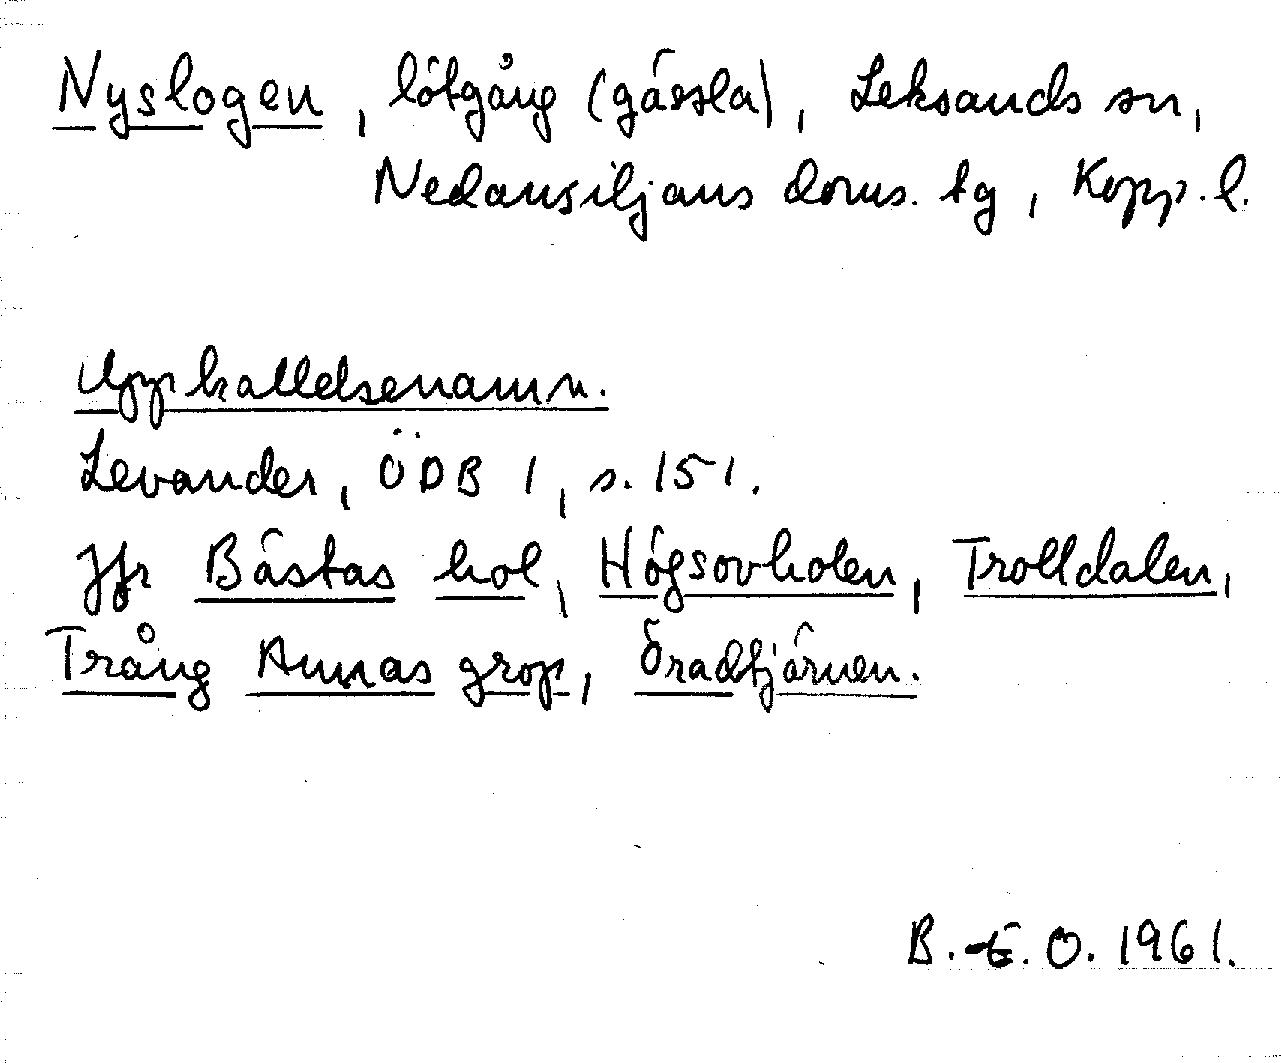 Nyslogen, lötgång (gässla), Leksands sn,
Nedansiljans doms. tg, Kopp. l.
Uppkallelsenamn.
Levander, ÖDB 1, s. 151.
Jfr Bästas hol, Högsovholen, Trolldalen,
Trång Annas grop, Öradtjärnen.
B.-E. O. 1961.